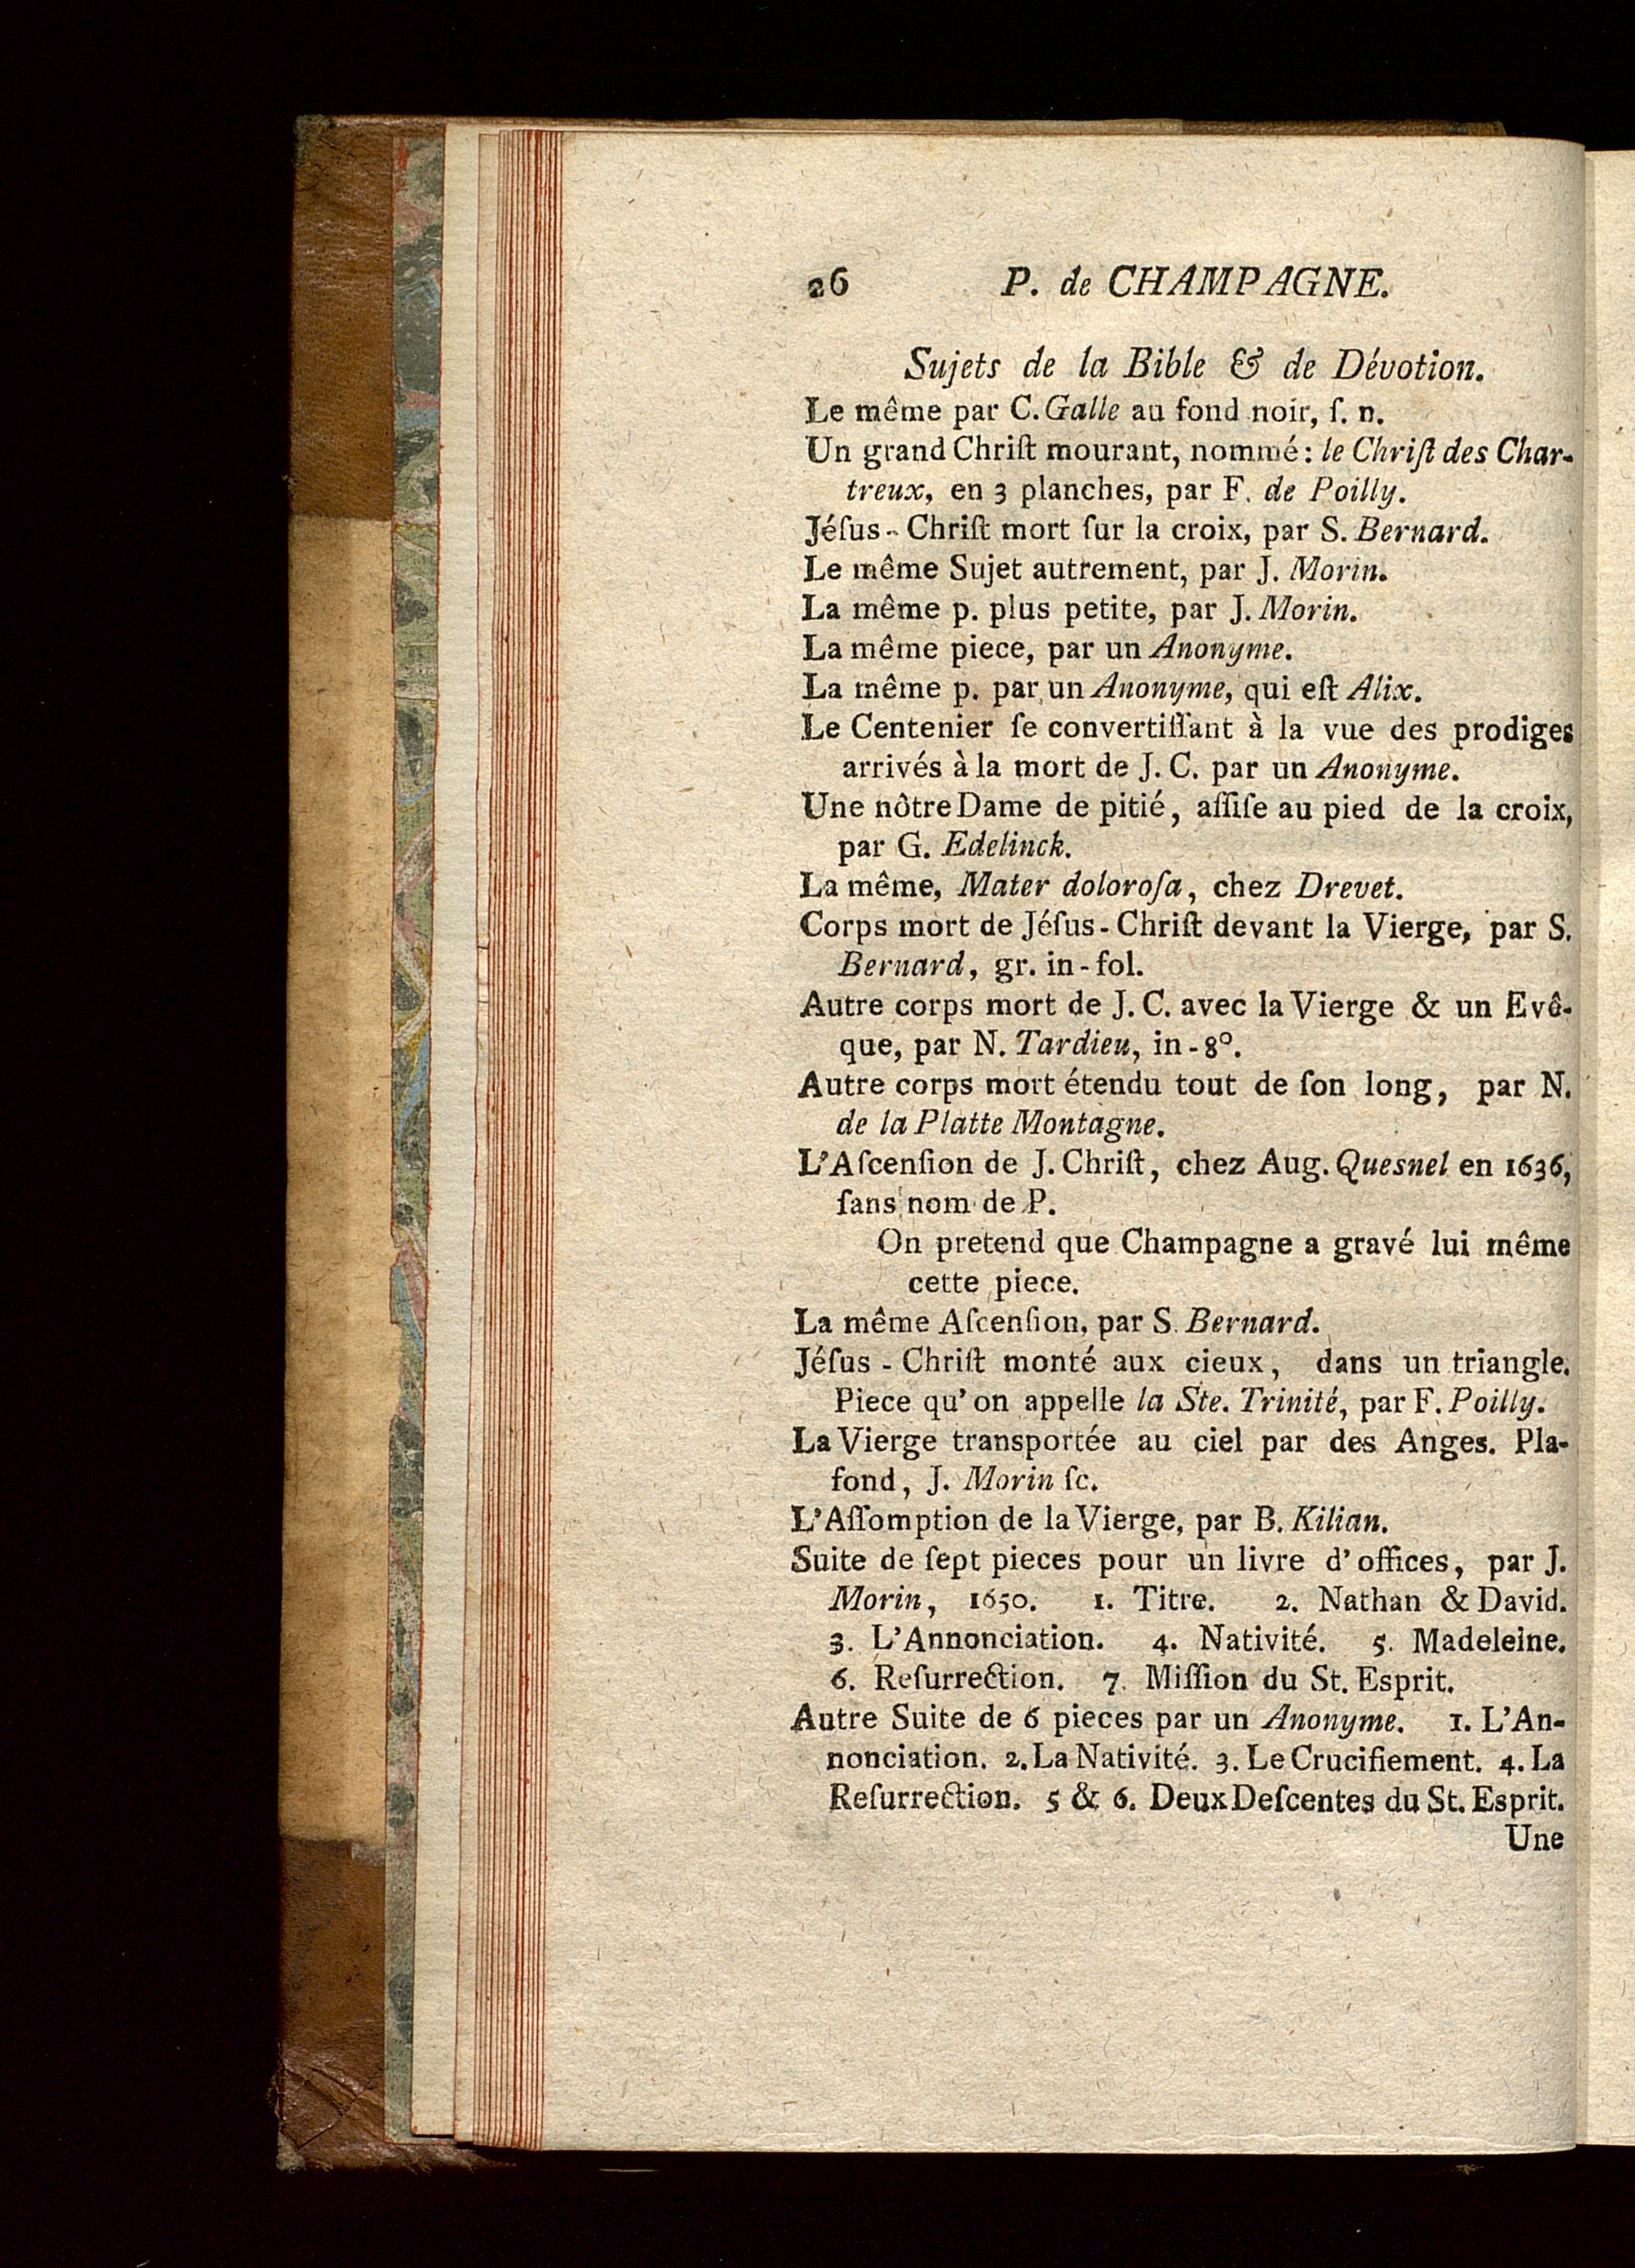 26 P. de CHAMPAGNE.
Sujets de la Bible & de Dévotion.
Le même par C. Galle au fond noir, ſ. n.
Un grand Chriſt mourant, nommé: le Chriſt des Char-
treux, en 3 planches, par F. de Poilly.
Jéſus-Chriſt mort ſur la croix, par S. Bernard.
Le même Sujet autrement, par J. Morin.
La même p. plus petite, par J. Morin.
La même piece, par un Anonyme.
La même p. par un Anonyme, qui eſt Alix.
Le Centenier ſe convertiſſant à la vue des prodiges
arrivés à la mort de J. C. par un Anonyme.
Une nôtre Dame de pitié, aſſiſe au pied de la croix,
par G. Edelinck.
La même, Mater doloroſa, chez Drevet.
Corps mort de Jéſus-Chriſt devant la Vierge, par S.
Bernard, gr. in-fol.
Autre corps mort de J. C. avec la Vierge & un Evê-
que, par N. Tardieu, in-8°.
Autre corps mort étendu tout de ſon long, par N.
de la Platte Montagne.
L'Aſcenſion de J. Chriſt, chez Aug. Quesnel en 1636,
ſans nom de P.
On pretend que Champagne a gravé lui même
cette piece.
La même Aſcenſion, par S. Bernard.
Jéſus-Chriſt monté aux cieux, dans un triangle.
Piece qu'on appelle la Ste. Trinité, par F. Poilly.
La Vierge transportée au ciel par des Anges. Pla-
fond, J. Morin ſc.
L'Aſſomption de la Vierge, par B. Kilian.
Suite de ſept pieces pour un livre d'offices, par J.
Morin, 1650. 1. Titre. 2. Nathan & David.
3. L'Annonciation. 4. Nativité. 5. Madeleine.
6. Reſurrection. 7. Miſſion du St. Esprit.
Autre Suite de 6 pieces par un Anonyme. 1. L'An-
nonciation. 2. La Nativité. 3. Le Crucifiement. 4. La
Reſurrection. 5 & 6. Deux Deſcentes du St. Esprit.
Une